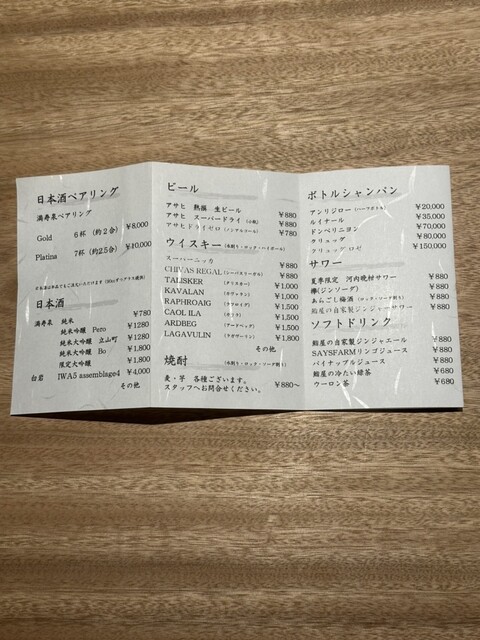 日本酒ペアリング
満寿泉ペアリング
Gold 6杯（約2合） ¥8,000
Platina 7杯（約2.5合） ¥10,000
日本酒
満寿泉 純米 ¥780
純米吟醸 Pero ¥1280
純米大吟醸 立山町 ¥1280
純米大吟醸 Bo ¥1,800
限定大吟醸 ¥1,800
白岩 IWA5 assemblage4 ¥4,000
その他
ビール
アサヒ 熟撰 生ビール ¥880
アサヒ スーパードライ（小瓶） ¥880
アサヒドライゼロ（ノンアルコール） ¥780
ウイスキー（水割り・ロック・ハイボール）
スーパーニッカ ¥880
CHIVAS REGAL（シーバスリーガル） ¥880
TALISKER（タリスカー） ¥1,000
KAVALAN（カヴァラン） ¥1,000
RAPHROAIG（ラフロイグ） ¥1,500
CAOL ILA（カリラ） ¥1,500
ARDBEG（アードベッグ） ¥1,500
LAGAVULIN（ラガヴーリン） ¥1,800
その他
焼酎（水割り・ロック・ソーダ割り）
麦・芋 各種ございます。
スタッフへお問合せください。 ¥880～
ボトルシャンパン
アンリジロー（ハーフボトル） ¥20,000
ルイナール ¥35,000
ドンペリニヨン ¥70,000
クリュッグ ¥80,000
クリュッグ ロゼ ¥150,000
サワー
夏季限定 河内晩柑サワー ¥880
欅(ジンソーダ) ¥880
あらごし梅酒（ロック・ソーダ割り） ¥880
鮨屋の自家製ジンジャーサワー ¥880
ソフトドリンク
鮨屋の自家製ジンジャエール ¥880
SAYSFARMリンゴジュース ¥880
パイナップルジュース ¥880
鮨屋の冷たい緑茶 ¥680
ウーロン茶 ¥680